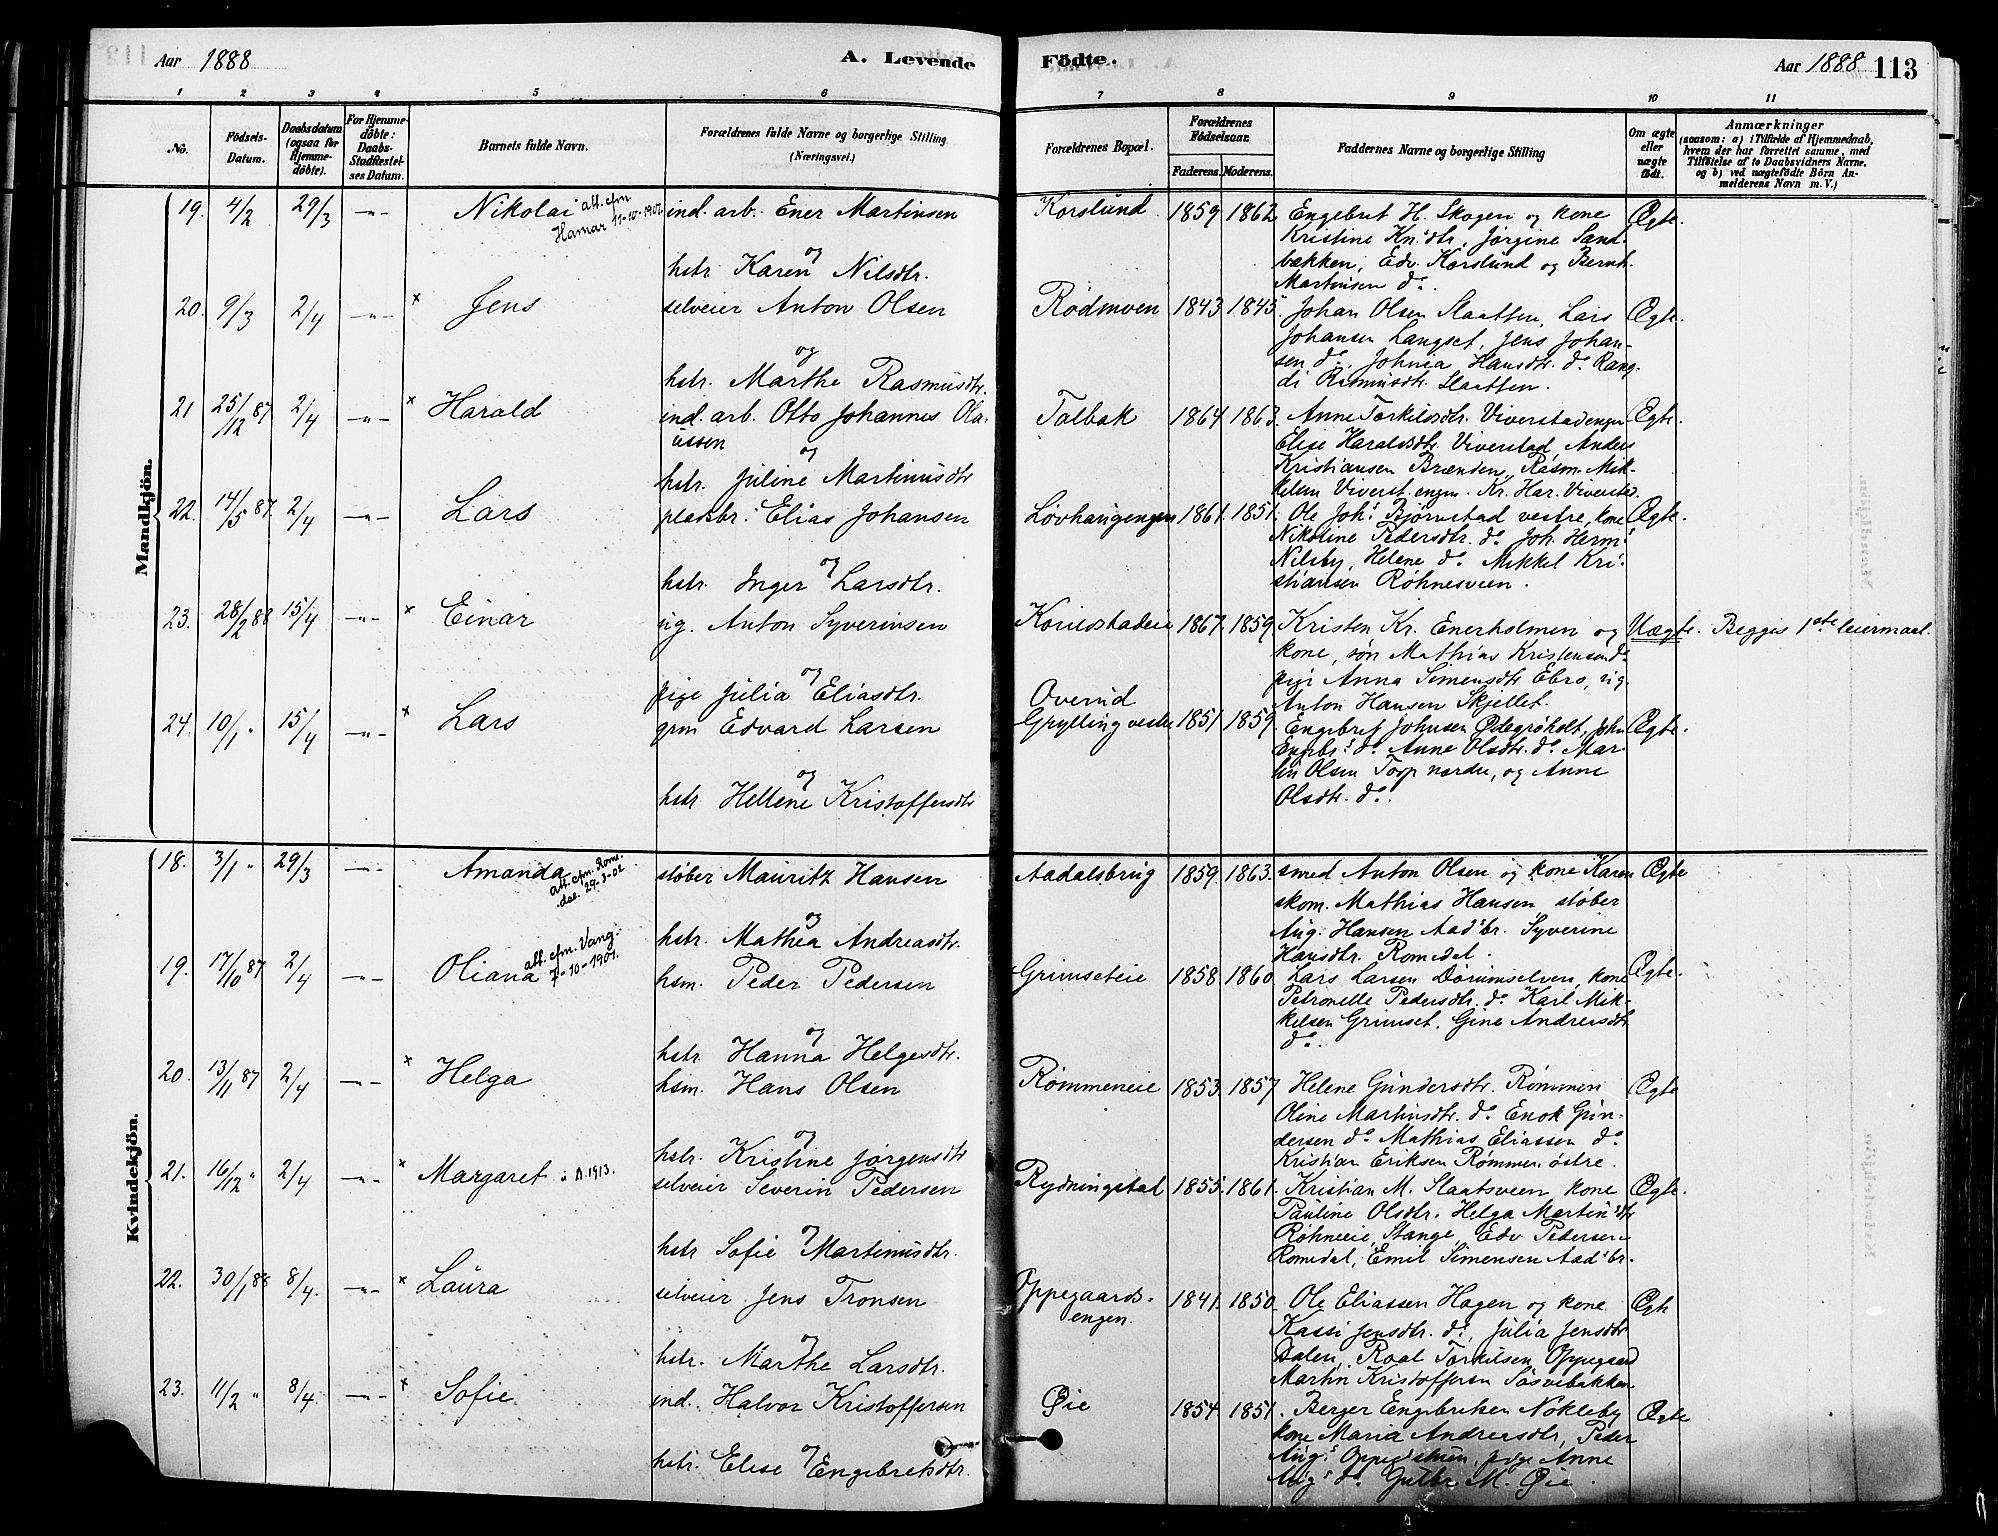 Aar 1888
A. Levende
Födte.
Aar 1888
113
1 2 3 4 5 6 7 8 9 10 11
No.
Födsels-
Datum.
Daabsdatum
(ogsaa for
Hjemme-
döbte).
For Hjemme-
döbte:
Daabs-
Stadfæstel-
ses Datum.
Barnets fulde Navn.
Forældrenes fulde Navne og borgerlige Stilling
(Næringsvei.)
Forældrenes Bopæl.
Forældrenes
Födselsaar.
Faderens. Moderens.
Faddernes Navne og borgerlige Stilling
Om ægte
eller
uægte
födt.
Anmærkninger
(saasom: a) i Tilfælde af Hjemmedaab,
hvem der har forrettet samme, med
Tilföielse af to Daabsvidners Navne,
og b) ved uægtefödte Börn An-
melderens Navn m. V.)
Mandkjön.
19. 4/2 29/3 -"- Nikolai att. cfm
Hamar 11-10-1902
ind. arb. Ener Martinsen
og
hstr. Karen Nilsdtr.
Korslund 1859 1862
Engebret H. Skogen og kone
Kristine Kn.dtr, Jørgine Sand-
bækken, Edv. Korslund og Bernh.
Martinsen do.
Ægte.
20. 9/3 2/4 -"- x Jens
selveier Anton Olsen
og
hstr. Marthe Rasmusdtr.
Rødmoen 1843 1845
Johan Olsen Slaatten, Lars
Johansen Langset, Jens Johan-
sen do. Johnea Hansdtr. do. Rang-
di Rasmusdtr. Slaatten.
Ægte.
21 25/12 87 2/4 -"- x Harald
ind. arb. Otto Johannes Ola-
ussen
og
hstr. Juline Martinusdtr
Talbak 1864 1863.
Anne Torkildsdtr. Viverstadengen
Elise Haraldsdtr. Viverstad, Anders
Kristiansen Brænden, Rasm. Mik-
kelsen Viverst.engen. Kr. Har. Viverstad.
Ægte.
22. 14/5 87. 2/4 -"- Lars
pladsbr. Elias Johansen
og
hstr. Inger Larsdtr.
Løvhaugengen 1861. 1851.
Ole Johs Bjørnstad vestre, kone
Nikoline Pedersdtr. do. Joh. Herm.
Nilsby, Helene do. Mikkel Kri-
stiansen Røhnesveen.
Ægte.
23. 28/2 88 15/4 -"- x Einar
ug. Anton Syverinsen
og
pige Julia Eliasdtr.
1867. 1859.
Kristen Kr. Enerholmen og
kone, søn Mathias Kristensen do
pige Anna Simensdtr Ebro, ug.
Anton Hansen Skjellet.
Uægte. Begges 1ste leiermaal.
24. 10/1 " 15/4 -"- x Lars
grm Edvard Larsen
og
hstr. Hellene Kristoffersdtr
Overud
Gryllingvestre 1851. 1859.
Engebret Johnsen Ødegrøholt, John
Engebrs do. Anne Olsdtr. do. Mar-
tin Olsen Torp nordre, og Anne
Olsdtr. do.
Ægte.
Kvindekjön.
18. 3/1 " 29/3 -"- Amanda
att. cfm. Rome-
dal. 29-3-02
støber Mauritz Hansen
og
hstr. Mathea Andreasdtr.
Aadalsbrug 1859. 1863.
smed Anton Olsen og kone Karen
skom. Mathias Hansen støber
Aug. Hansen Aadsbr. Syverine
Hansdtr. Romedal.
Ægte
19. 17/10 87 2/4 -"- Oliana att. cfm. Vang.
7-10-1901.
hsm. Peder Pedersen
og
hstr. Hanna Helgesdtr.
Grimseteie 1858. 1860.
Lars Larsen Dørumselven, kone
Petronelle Pedersdtr. do. Karl Mik-
kelsen Grimset. Gine Andreasdtr
do.
Ægte.
20. 13/11 87 2/4 -"- x Helga
hsm. Hans Olsen
og
hstr. Kristine Jørgensdtr
Rømmeneie 1853. 1857.
Helene Gundersdtr. Rømmen
Oline Martinsdtr. do. Enok Gun-
dersen do. Mathias Eliassen do.
Kristian Eriksen Rømmen østre.
Ægte
21. 16/12 " 2/4 -"- x Margaret A. 1913.
selveier Severin Pedersen
og
hstr Sofie Martinusdtr.
Rydningstal 1855. 1861.
Kristian M. Slaatsveen, kone
Pauline Olsdtr. Helga Martinsdtr
Røhneeie, Stange, Edv Pedersen
Romedal, Emil Simensen Aadsbr.
Ægte.
22. 30/1 88 8/4. -"- x Laura
selveier Jens Tronsen
og
hstr. Marthe Larsdtr.
Oppegaards-
engen. 1841. 1850.
Ole Eliassen Hagen og kone
Kassi Jensdtr. do, Julia Jensdtr
Dalen, Roal Torkilsen Oppegaard
Martin Kristoffersen Søsvebakken
Ægte
23. 11/2 " 8/4 -"- x Sofie
ind. Halvor Kristoffersen
og
hstr. Elise Engebretsdtr.
Øie 1854. 1851.
Berger Engebretsen Nøkleby
kone Maria Andreasdtr, Peder
Augs pige Anne
Augs do. Gulbr. M. Øie.
Ægte